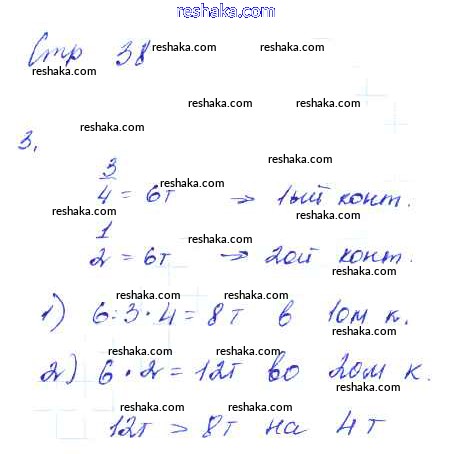 reshaka.com
Стр 38
reshaka.com reshaka.com reshaka.com
reshaka.com
3.
reshaka.com
3/4 = 6т → 1ый конт.
reshaka.com reshaka.com reshaka.com
reshaka.com
1/2 = 6т → 2ой конт.
reshaka.com reshaka.com
reshaka.com reshaka.com
1) 6:3·4=8т в 1ом к.
reshaka.com reshaka.com
reshaka.com reshaka.com
2) 6·2=12т во 2ом к.
reshaka.com reshaka.com
reshaka.com reshaka.com
12т > 8т на 4т
reshaka.com